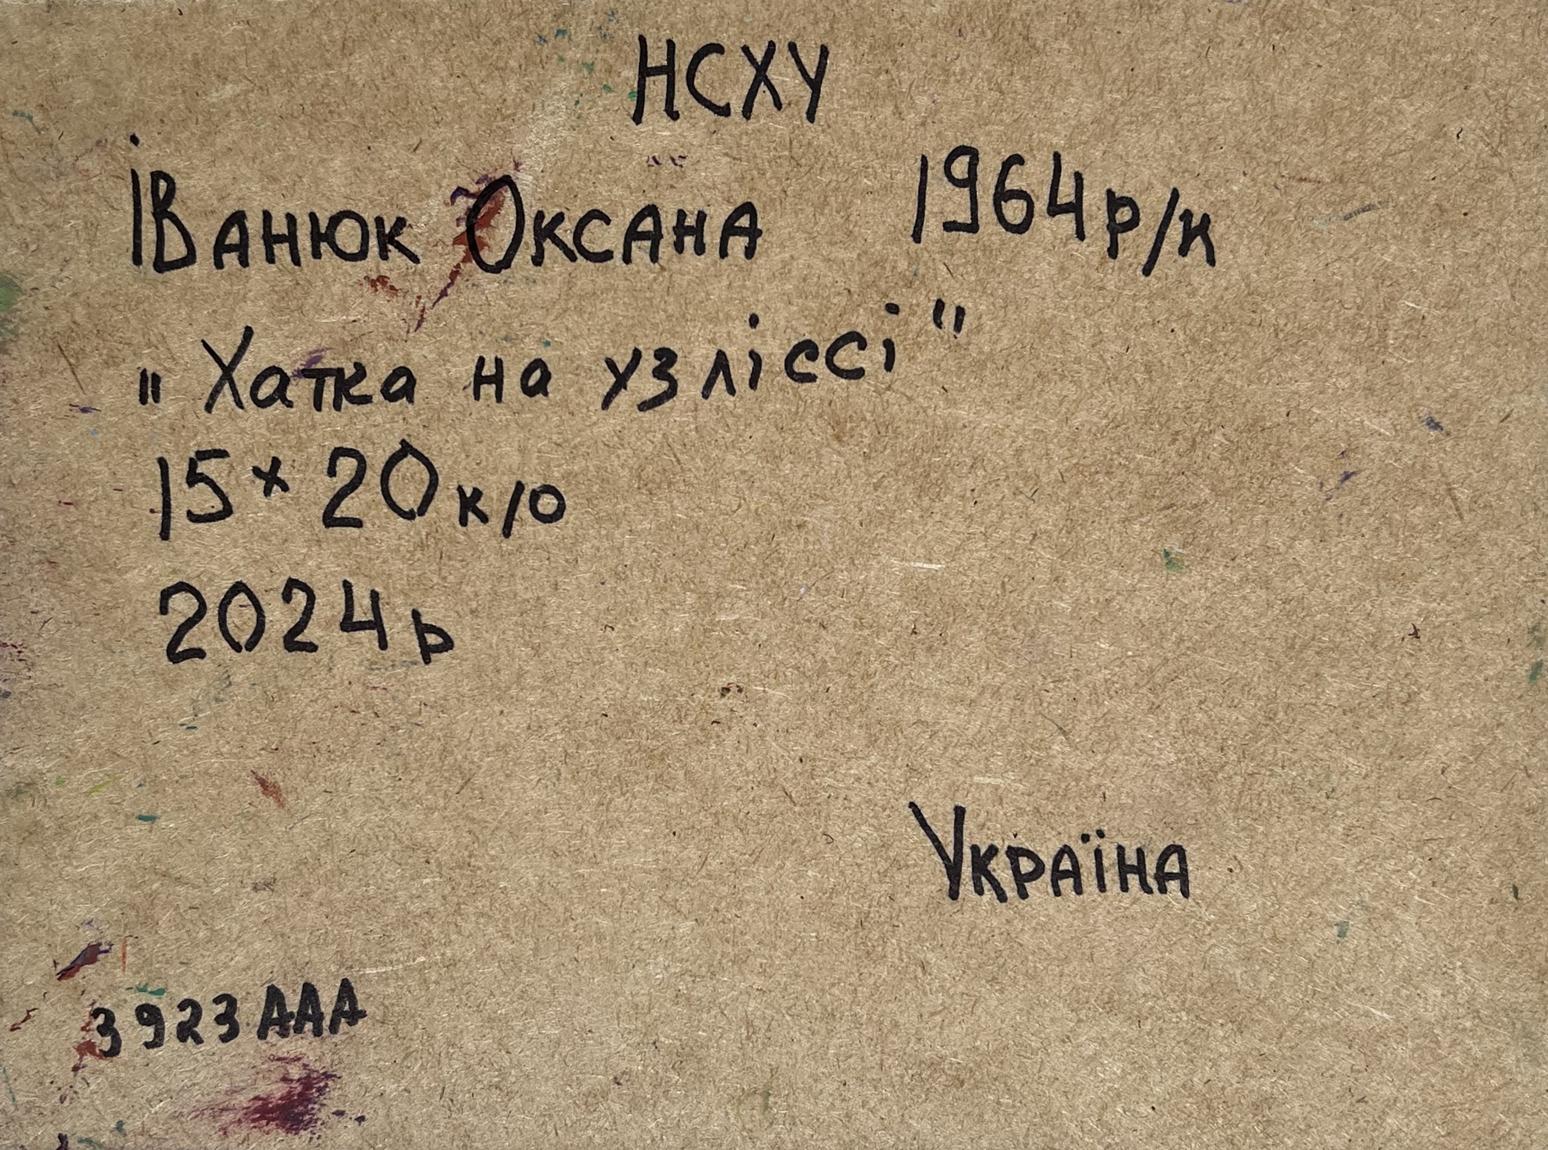 НСХУ
Іванюк Оксана 1964 р/н
"Хатка на узліссі"
15 x 20 к/о
2024 р
Україна
3923 ААА